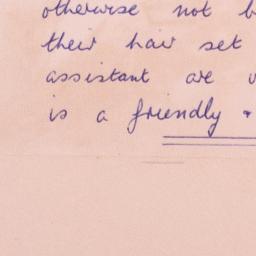 otherwise not
their hair set
assistant are
is a friendly +